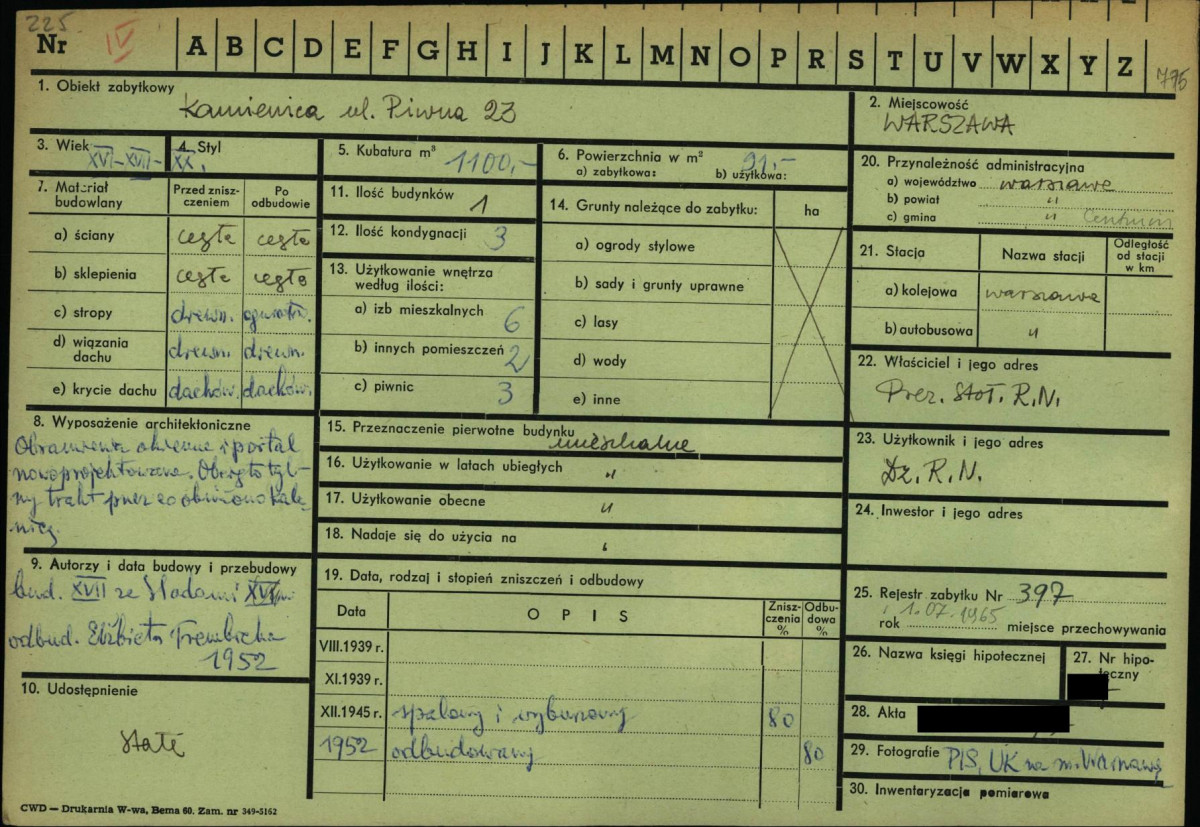 225
Nr IV A B C D E F G H I J K L M N O P R S T U V W X Y Z 775
1. Obiekt zabytkowy
Kamienica ul. Piwna 23
2. Miejscowość
WARSZAWA
3. Wiek XVI-XVII-XX.
4. Styl
5. Kubatura m³ 1100,-
6. Powierzchnia w m² 91,-
a) zabytkowa: b) użytkowa:
7. Materiał budowlany
Przed zniszczeniem
Po odbudowie
a) ściany cegła cegła
b) sklepienia cegła cegła
c) stropy drewn. ogniotr.
d) wiązania dachu drewn. drewn.
e) krycie dachu dachów. dachów.
8. Wyposażenie architektoniczne
Obramienia okienne i portal
nowoprojektowane. Obcięto tyl-
ny trakt przez co obniżono kale-
nicę.
9. Autorzy i data budowy i przebudowy
bud. XVII ze śladami XVI w.
odbud. Elżbieta Trembicka
1952
10. Udostępnienie
stałe
11. Ilość budynków 1
12. Ilość kondygnacji 3
13. Użytkowanie wnętrza
według ilości:
a) izb mieszkalnych 6
b) innych pomieszczeń 2
c) piwnic 3
14. Grunty należące do zabytku: ha
a) ogrody stylowe
b) sady i grunty uprawne
c) lasy
d) wody
e) inne
15. Przeznaczenie pierwotne budynku mieszkalne
16. Użytkowanie w latach ubiegłych "
17. Użytkowanie obecne "
18. Nadaje się do użycia na "
19. Data, rodzaj i stopień zniszczeń i odbudowy
Data OPIS Zniszczenia % Odbudowa %
VIII.1939 r.
XI.1939 r.
XII.1945 r. spalony i wyburzony 80
1952 odbudowany 80
20. Przynależność administracyjna
a) województwo warszawa
b) powiat "
c) gmina " Centrum
21. Stacja Nazwa stacji Odległość od stacji w km
a) kolejowa warszawa
b) autobusowa "
22. Właściciel i jego adres
Prez. Stoł. R.N.
23. Użytkownik i jego adres
Dz. R.N.
24. Inwestor i jego adres
25. Rejestr zabytku Nr 397
rok 1.07.1965 miejsce przechowywania
26. Nazwa księgi hipotecznej
27. Nr hipoteczny
28. Akta
29. Fotografie PIS, UK na m. Warszawę
30. Inwentaryzacja pomiarowa
CWD — Drukarnia W-wa, Bema 60. Zam. nr 349-5162